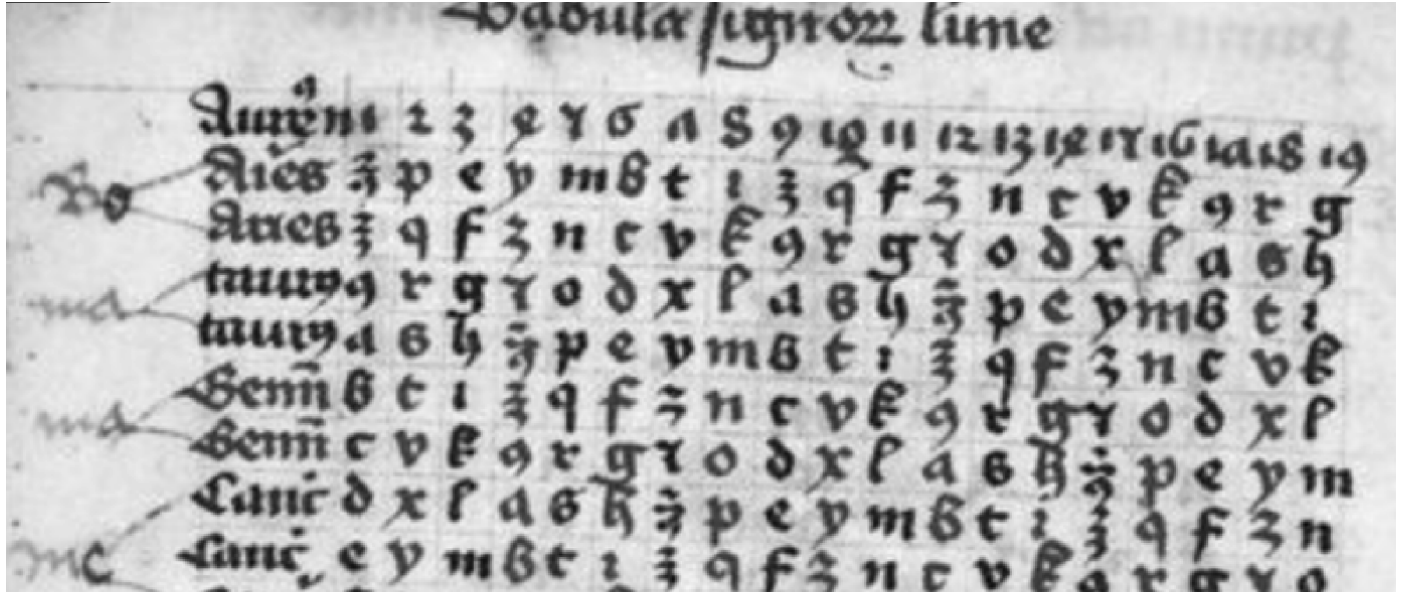 Tabula signoꝝ lune
Aureꝰ nꝰ 1 2 3 4 5 6 7 8 9 10 11 12 13 14 15 16 17 18 19
Bo
Aries ꝫ̃ p e y m b t i ꝫ q f z n c v k 9 r g
Aries ꝫ q f z n c v k 9 r g ꝛ o d x l a s h
ma
taurꝰ 9 r g ꝛ o d x l a s h ꝫ̃ p e y m b t i
taurꝰ a s h ꝫ̃ p e y m b t i ꝫ q f z n c v k
ma
Gemī b t i ꝫ q f z n c v k 9 r g ꝛ o d x l
Gemī c v k 9 r g ꝛ o d x l a s h ꝫ̃ p e y m
mc
Canc̄ d x l a s h ꝫ̃ p e y m b t i ꝫ q f z n
Canc̄ e y m b t i ꝫ q f z n c v k 9 r g ꝛ o